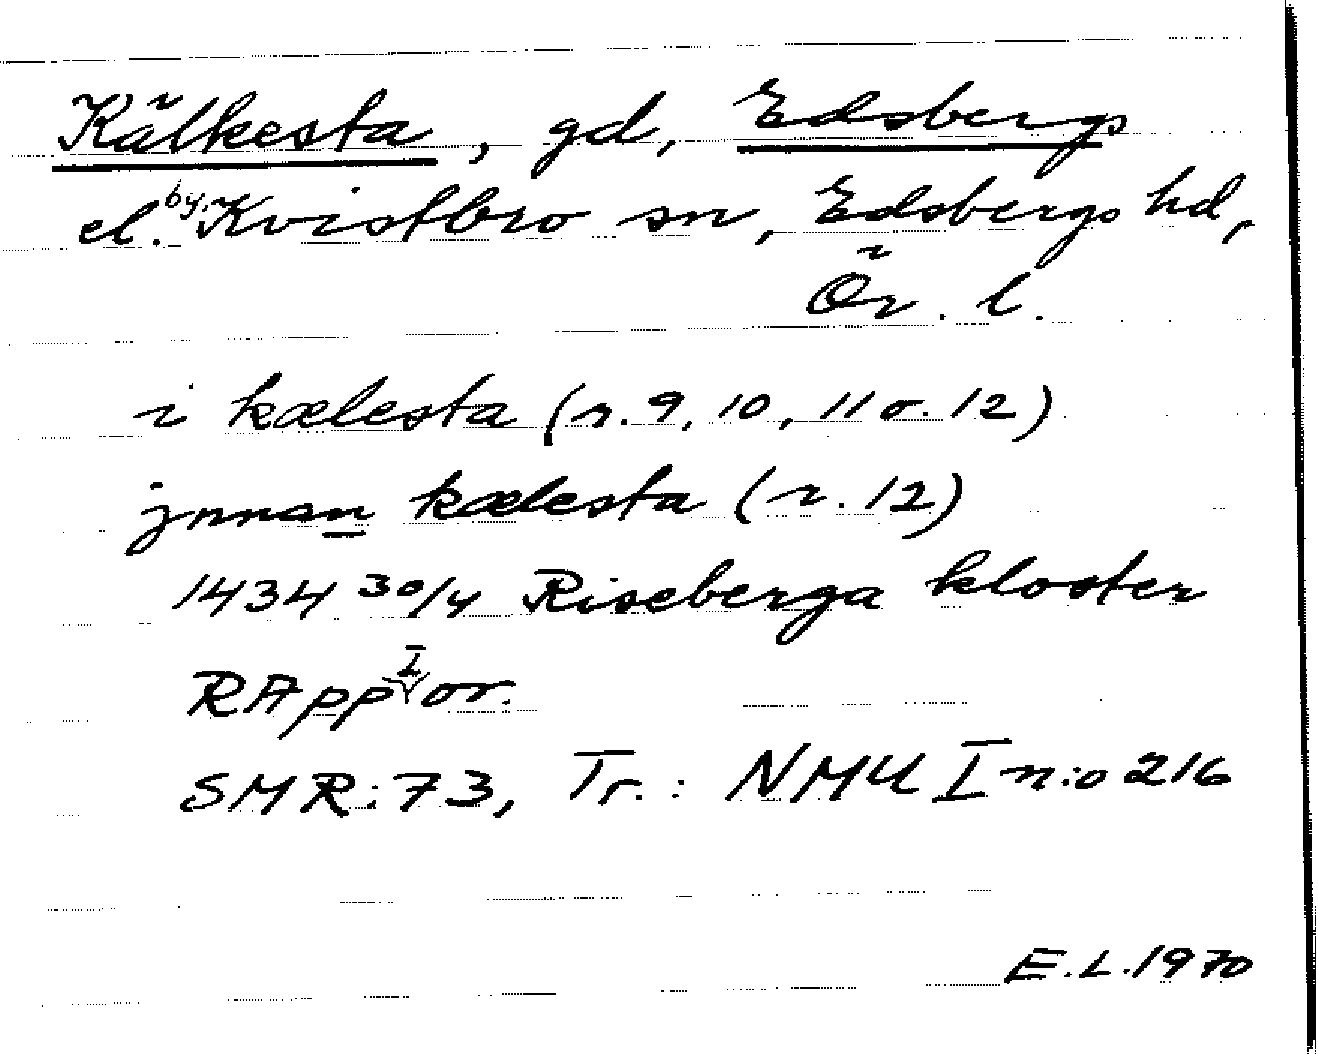 Kälkesta, gd, Edsbergs
el. by, Kvistbro sn, Edsbergs hd,
Ör. l.
i kælesta (r. 9, 10, 11 o. 12)
jnnan kælesta (r. 12)
1434 30/4 Riseberga kloster
RApp I or.
SMR: 73, Tr.: NMU I n:o 216
E.L. 1970